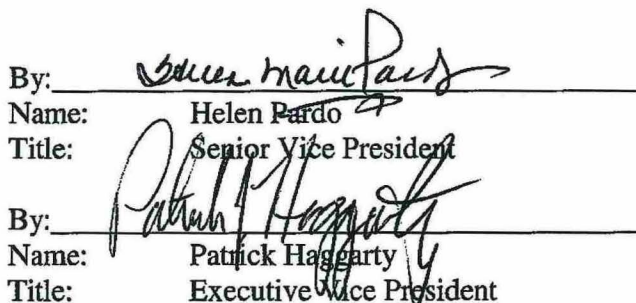 By: Helen Marie Pardo
Name: Helen Pardo
Title: Senior Vice President
By: Patrick J Haggarty
Name: Patrick Haggarty
Title: Executive Vice President